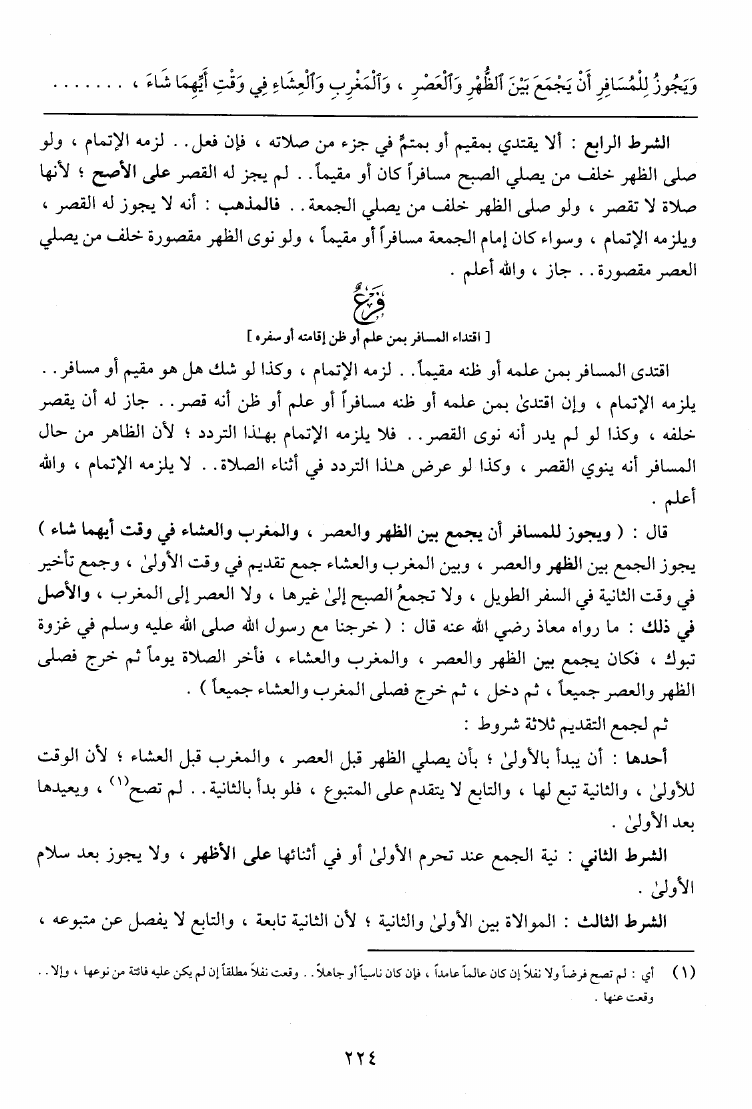 وَيَجُوزُ لِلْمُسَافِرِ أَنْ يَجْمَعَ بَيْنَ ٱلظُّهْرِ وَٱلْعَصْرِ ، وَٱلْمَغْرِبِ وَٱلْعِشَاءِ فِي وَقْتِ أَيِّهِمَا شَاءَ ، .......
الشرط الرابع : ألا يقتدي بمقيم أو بمتمٍّ في جزء من صلاته ، فإن فعل .. لزمه الإتمام ، ولو
صلى الظهر خلف من يصلي الصبح مسافراً كان أو مقيماً .. لم يجز له القصر على الأصح ؛ لأنها
صلاة لا تقصر ، ولو صلى الظهر خلف من يصلي الجمعة .. فالمذهب : أنه لا يجوز له القصر ،
ويلزمه الإتمام ، وسواء كان إمام الجمعة مسافراً أو مقيماً ، ولو نوى الظهر مقصورة خلف من يصلي
العصر مقصورة .. جاز ، والله أعلم .
فَرْعٌ
[ اقتداء المسافر بمن علم أو ظن إقامته أو سفره ]
اقتدى المسافر بمن علمه أو ظنه مقيماً .. لزمه الإتمام ، وكذا لو شك هل هو مقيم أو مسافر ..
يلزمه الإتمام ، وإن اقتدىٰ بمن علمه أو ظنه مسافراً أو علم أو ظن أنه قصر .. جاز له أن يقصر
خلفه ، وكذا لو لم يدر أنه نوى القصر .. فلا يلزمه الإتمام بهـٰذا التردد ؛ لأن الظاهر من حال
المسافر أنه ينوي القصر ، وكذا لو عرض هـٰذا التردد في أثناء الصلاة .. لا يلزمه الإتمام ، والله
أعلم .
قال : ( ويجوز للمسافر أن يجمع بين الظهر والعصر ، والمغرب والعشاء في وقت أيهما شاء )
يجوز الجمع بين الظهر والعصر ، وبين المغرب والعشاء جمع تقديم في وقت الأولىٰ ، وجمع تأخير
في وقت الثانية في السفر الطويل ، ولا تجمعُ الصبح إلىٰ غيرها ، ولا العصر إلى المغرب ، والأصل
في ذلك : ما رواه معاذ رضي الله عنه قال : ( خرجنا مع رسول الله صلى الله عليه وسلم في غزوة
تبوك ، فكان يجمع بين الظهر والعصر ، والمغرب والعشاء ، فأخر الصلاة يوماً ثم خرج فصلى
الظهر والعصر جميعاً ، ثم دخل ، ثم خرج فصلى المغرب والعشاء جميعاً ) .
ثم لجمع التقديم ثلاثة شروط :
أحدها : أن يبدأ بالأولىٰ ؛ بأن يصلي الظهر قبل العصر ، والمغرب قبل العشاء ؛ لأن الوقت
للأولىٰ ، والثانية تبع لها ، والتابع لا يتقدم على المتبوع ، فلو بدأ بالثانية .. لم تصح(١) ، ويعيدها
بعد الأولىٰ .
الشرط الثاني : نية الجمع عند تحرم الأولىٰ أو في أثنائها على الأظهر ، ولا يجوز بعد سلام
الأولىٰ .
الشرط الثالث : الموالاة بين الأولىٰ والثانية ؛ لأن الثانية تابعة ، والتابع لا يفصل عن متبوعه ،
(١) أي : لم تصح فرضاً ولا نفلاً إن كان عالماً عامداً ، فإن كان ناسياً أو جاهلاً .. وقعت نفلاً مطلقاً إن لم يكن عليه فائتة من نوعها ، وإلا ..
وقعت عنها .
٢٢٤